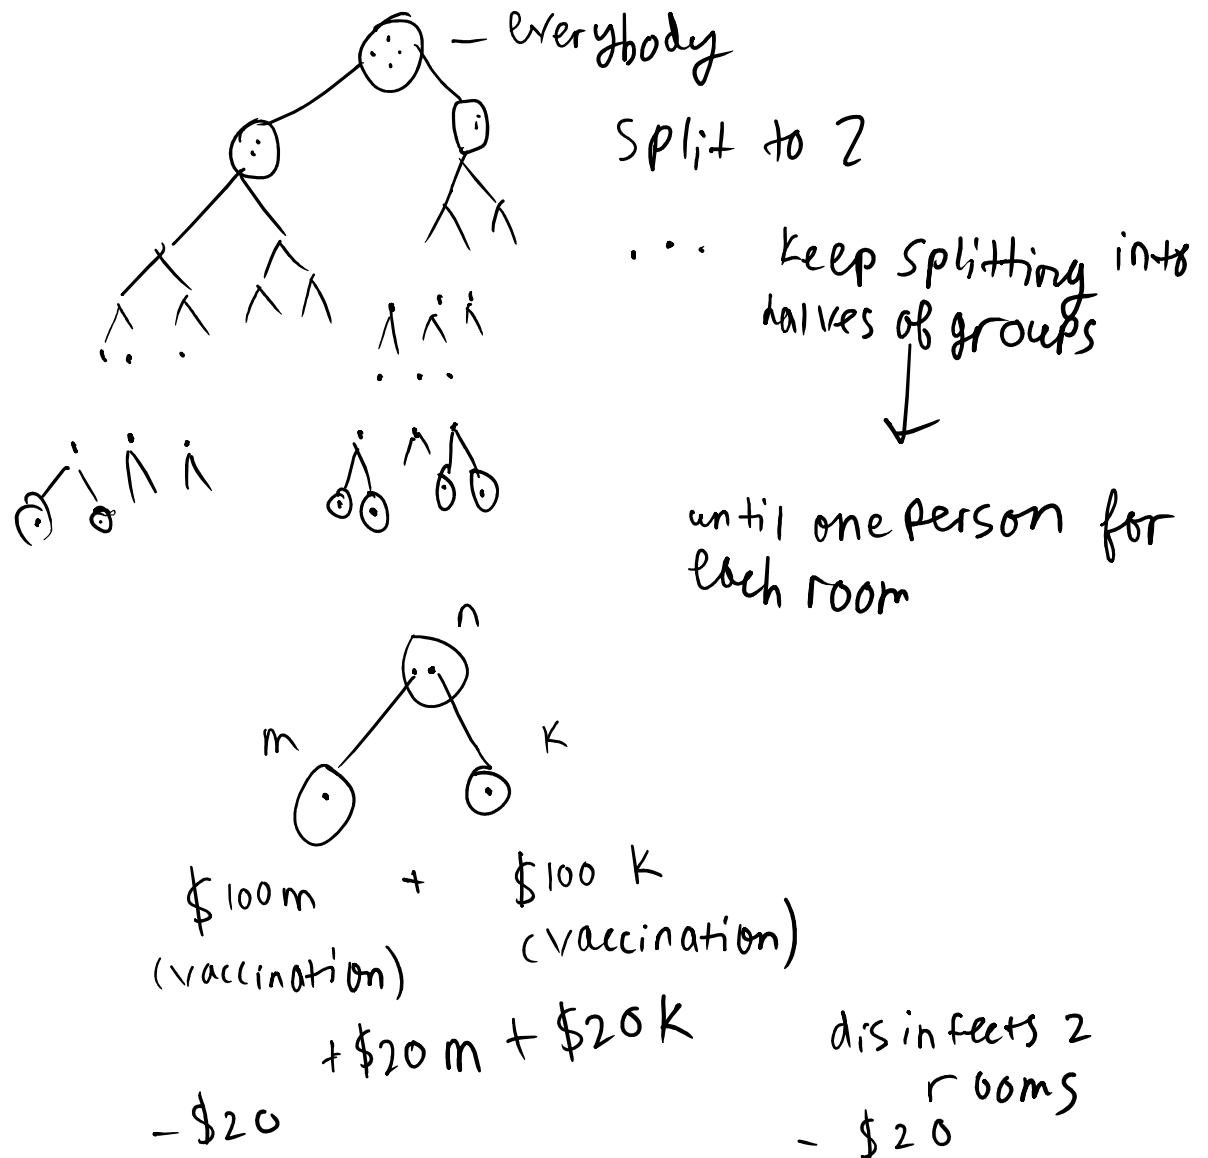 — everybody
split to 2
... keep splitting into
halves of groups
until one person for
each room
n
m
k
$100m + $100 k
(vaccination) (vaccination)
+ $20 m + $20 k
disinfects 2
rooms
- $20 - $20